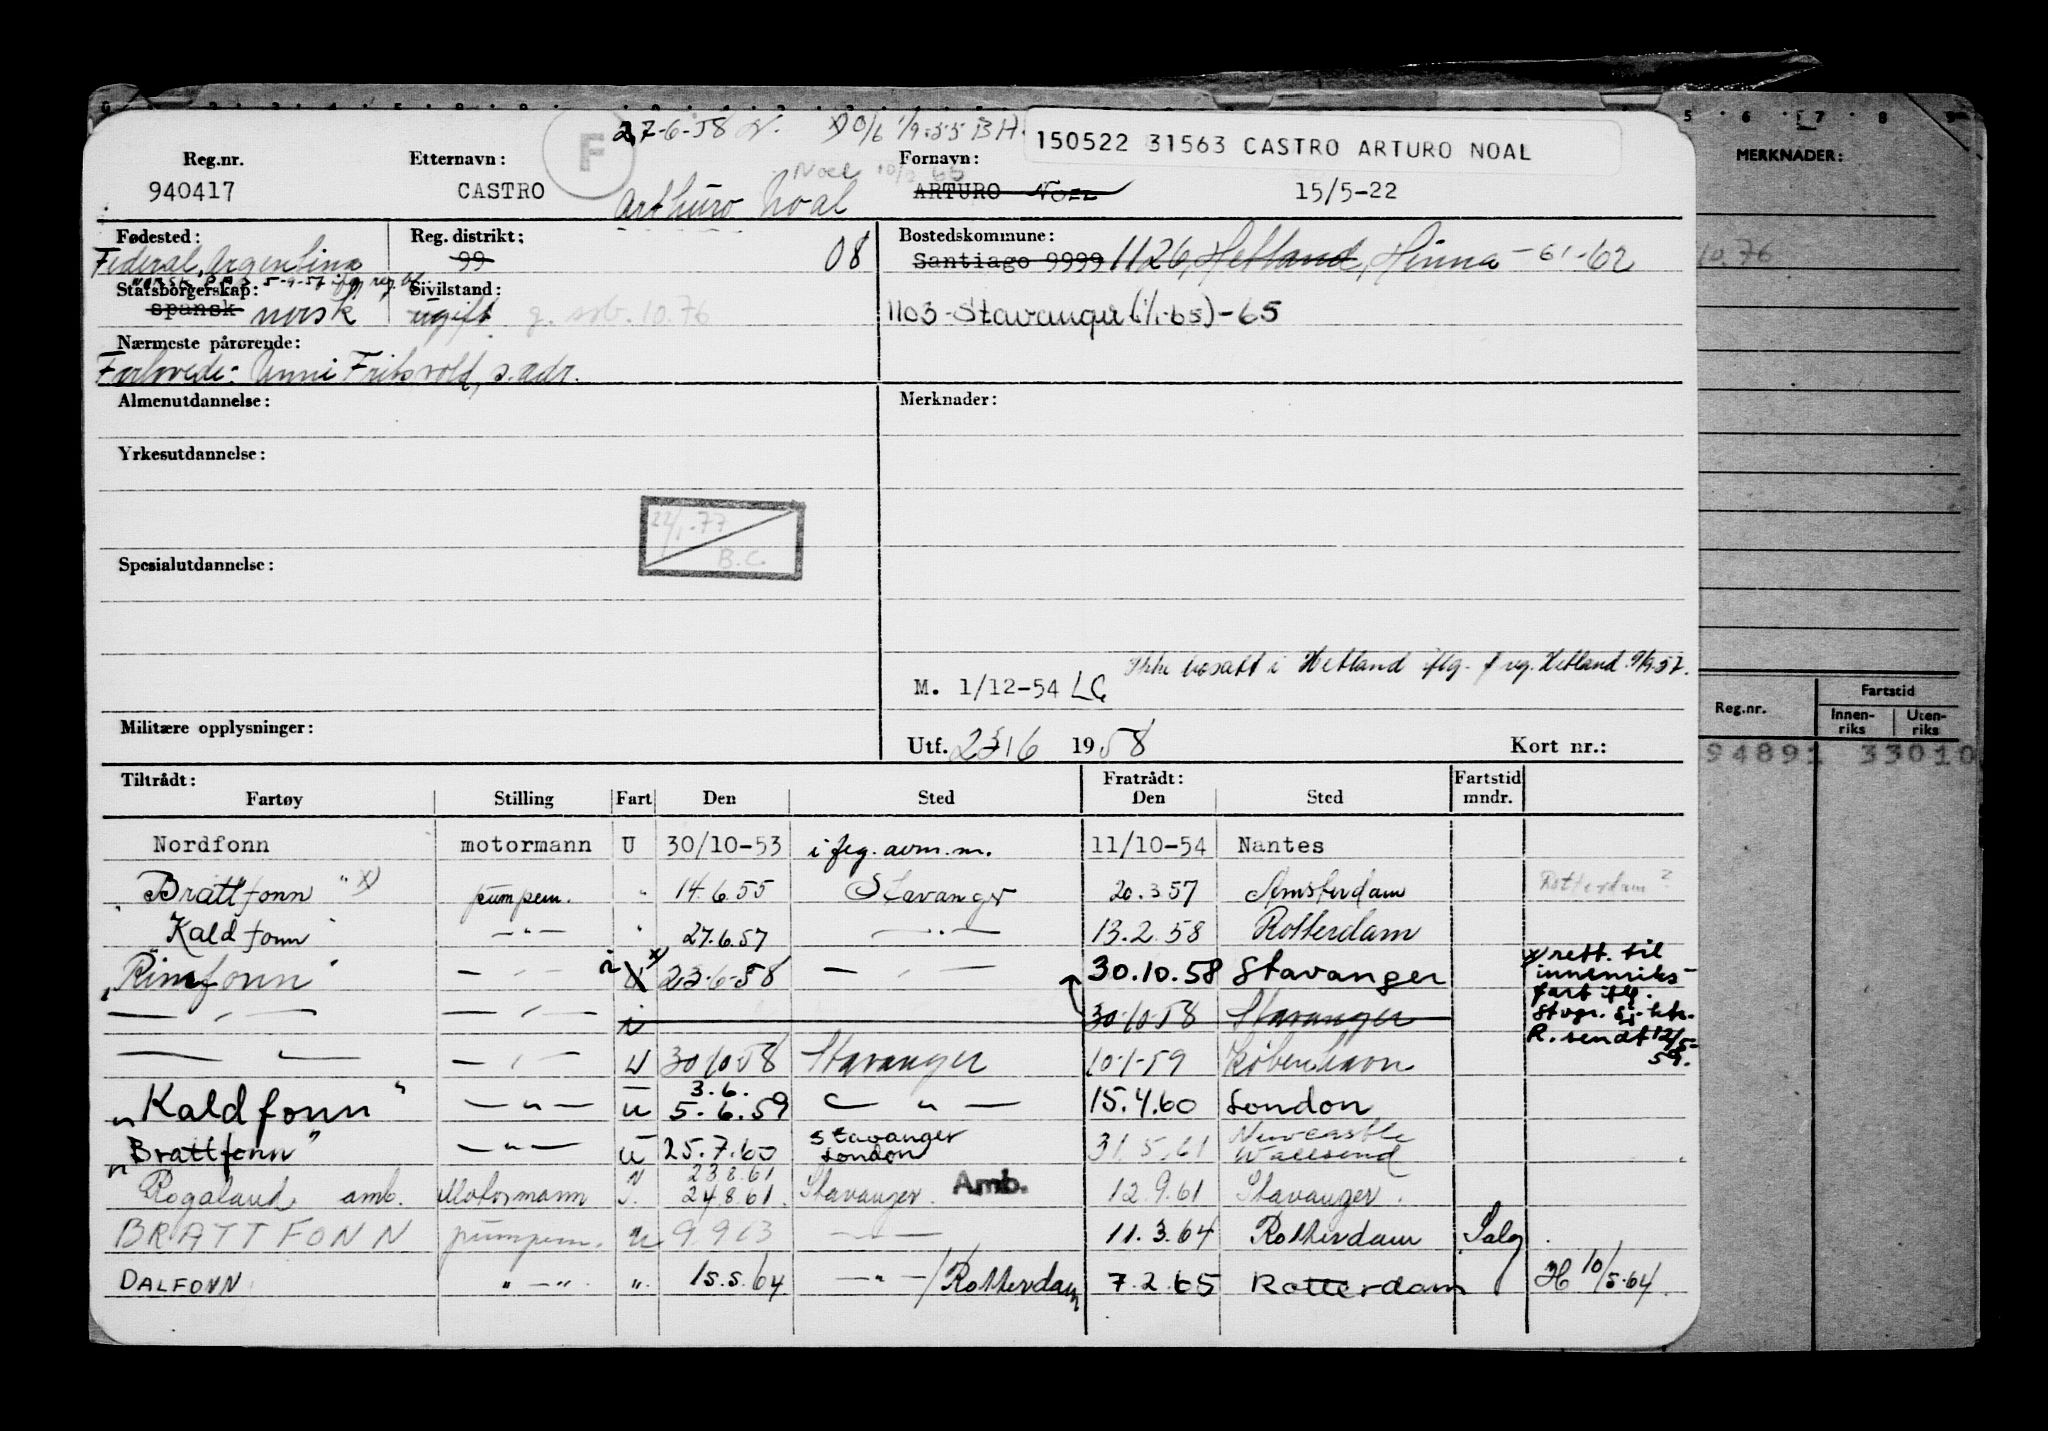 27-6-58 N. x) 0/6 1/9-55 BH.
150522 31563 CASTRO ARTURO NOAL
Reg.nr. Etternavn: F Fornavn:
Noel
940417 CASTRO Arthuro Noal ARTURO 15/5-22
Fødested: Reg. distrikt: Bostedskommune:
Federal, Argentina 99 08 Santiago 9999 1126, Hetland, Hinna -61-62
Statsborgerskap: Sivilstand:
spansk norsk ugift g. 10.76 1103 Stavanger (1/1-65)-65
Nærmeste pårørende:
Forlovede: Unni s. adr.
Almenutdannelse: Merknader:
Yrkesutdannelse:
22/1-77
B.C.
Spesialutdannelse:
Ikke bosatt i Hetland iflg. f. reg. Hetland 9/9-57.
M. 1/12-54 LG
Militære opplysninger: Utf. 1958 Kort nr.:
Tiltrådt: Fratrådt: Fartstid
Fartøy Stilling Fart Den Sted Den Sted mndr.
Nordfonn motormann U 30/10-53 i flg. avm. m. 11/10-54 Nantes
Brattfonn" x) pumpem. " 14.6.55 Stavanger 20.3.57 Amsterdam Rotterdam?
Kaldfonn — " — " 27.6.57 — " — 13.2.58 Rotterdam
"Rimfonn" — " — i U x) 23-6-58 — " — 30.10.58 Stavanger x) rett. til
innenriks-
fart iflg.
— " — — " — i 30-10-58 Stavanger Stvgr. sj. ktr.
R. sendt 12/5-
59.
— " — — " — U 30/10-58 Stavanger 10-1-59 København
3.6.
"Kaldfonn" — " — u 5.6.59 — " — 15.4.60 London
Stavanger Newcastle
"Brattfonn" — " — u 25.7.60 London 31.5.61 Wallsend
23.8.61
Rogaland amb. Motormann 24.8.61. Stavanger. Amb. 12.9.61 Stavanger.
BRATTFONN pumpem. u 9.9.63 — " — 11.3.64 Rotterdam Salg
DALFONN " — " ". 15.5.64 — " — / Rotterdam 7.2.65 Rotterdam H 10/5-64.
MERKNADER:
10.76
Reg.nr. Fartstid
Innen-
riks
Uten-
riks
94891 33010